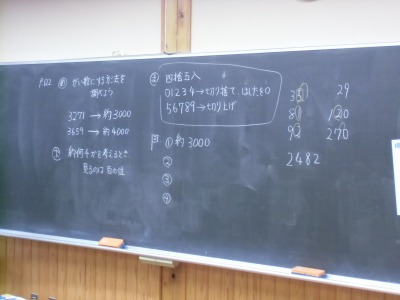 P.122 め がい数にする方法を
調べよう
3271→約3000
3659→約4000
約何千かを考えるとき、
見るのは百の位
四捨五入
01234→切り捨て はしたを0
56789→切り上げ
① 約3000
②
③
④
35 29
81 120
92 270
2482